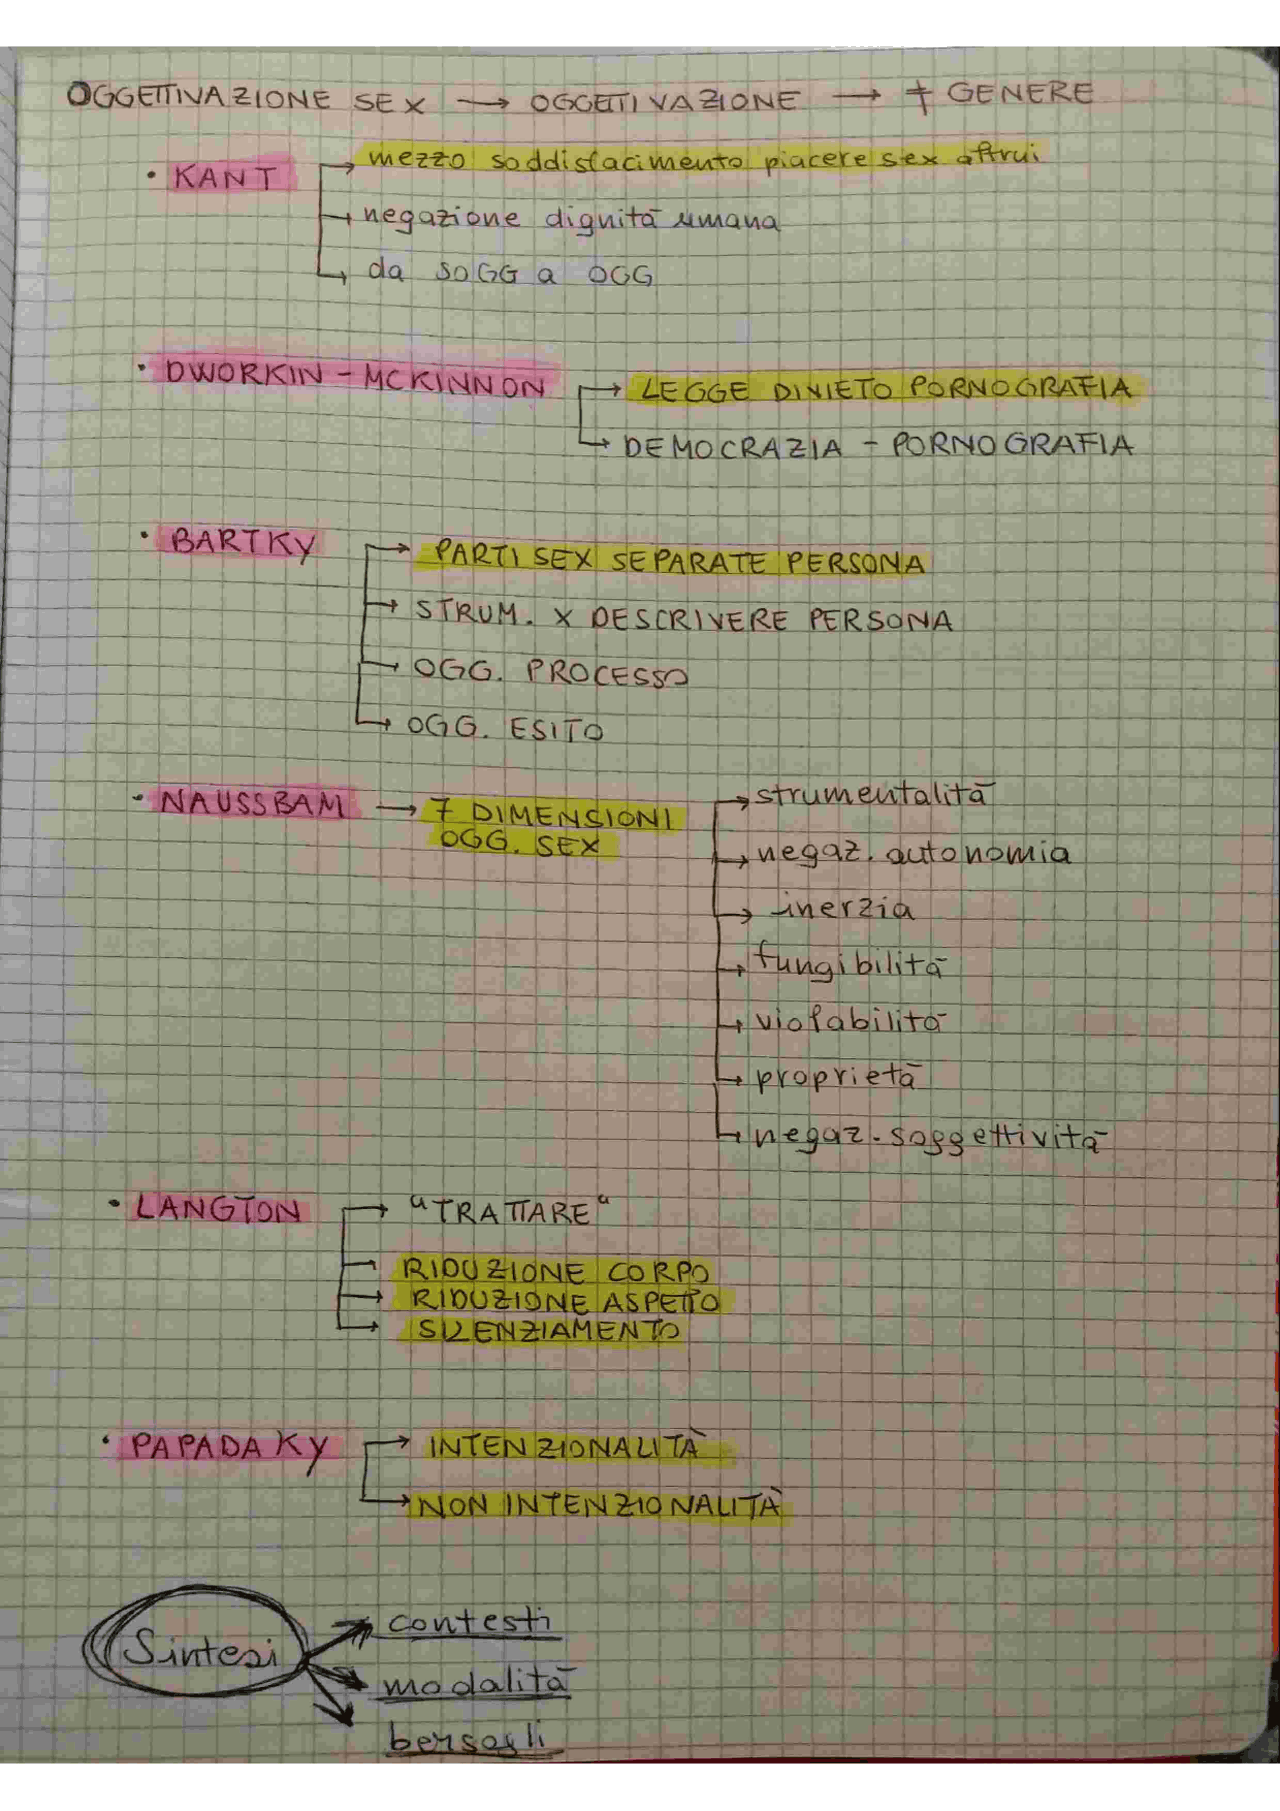 OGGETTIVAZIONE SEX → OGGETTIVAZIONE → ≠ GENERE
• KANT → mezzo soddisfacimento piacere sex altrui
→ negazione dignità umana
→ da SOGG a OGG
• DWORKIN - MCKINNON → LEGGE DIVIETO PORNOGRAFIA
→ DEMOCRAZIA - PORNOGRAFIA
• BARTKY → PARTI SEX SEPARATE PERSONA
→ STRUM. X DESCRIVERE PERSONA
→ OGG. PROCESSO
→ OGG. ESITO
• NAUSSBAM → 7 DIMENSIONI OGG. SEX
→ strumentalità
→ negaz. autonomia
→ inerzia
→ fungibilità
→ violabilità
→ proprietà
→ negaz. soggettività
• LANGTON → "TRATTARE"
→ RIDUZIONE CORPO
→ RIDUZIONE ASPETTO
→ SILENZIAMENTO
• PAPADAKY → INTENZIONALITÀ
→ NON INTENZIONALITÀ
Sintesi → contesti
→ modalità
→ bersagli